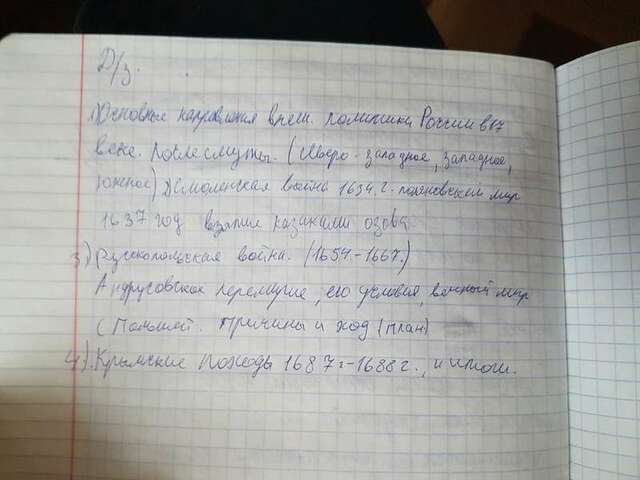 Д/з.
1) Основные направления внеш. политики России в 17
веке. После смуты. (Северо-западное, западное,
южное) 2) Смоленская война 1634 г. поляновский мир
1637 год взятие казаками озова
3) Русскопольская война. (1654.-1667.)
Андрусовское перемирие, его условия, вечный мир
с Польшей. Причины и ход (план)
4). Крымские походы 1687г-1688г., и итоги.